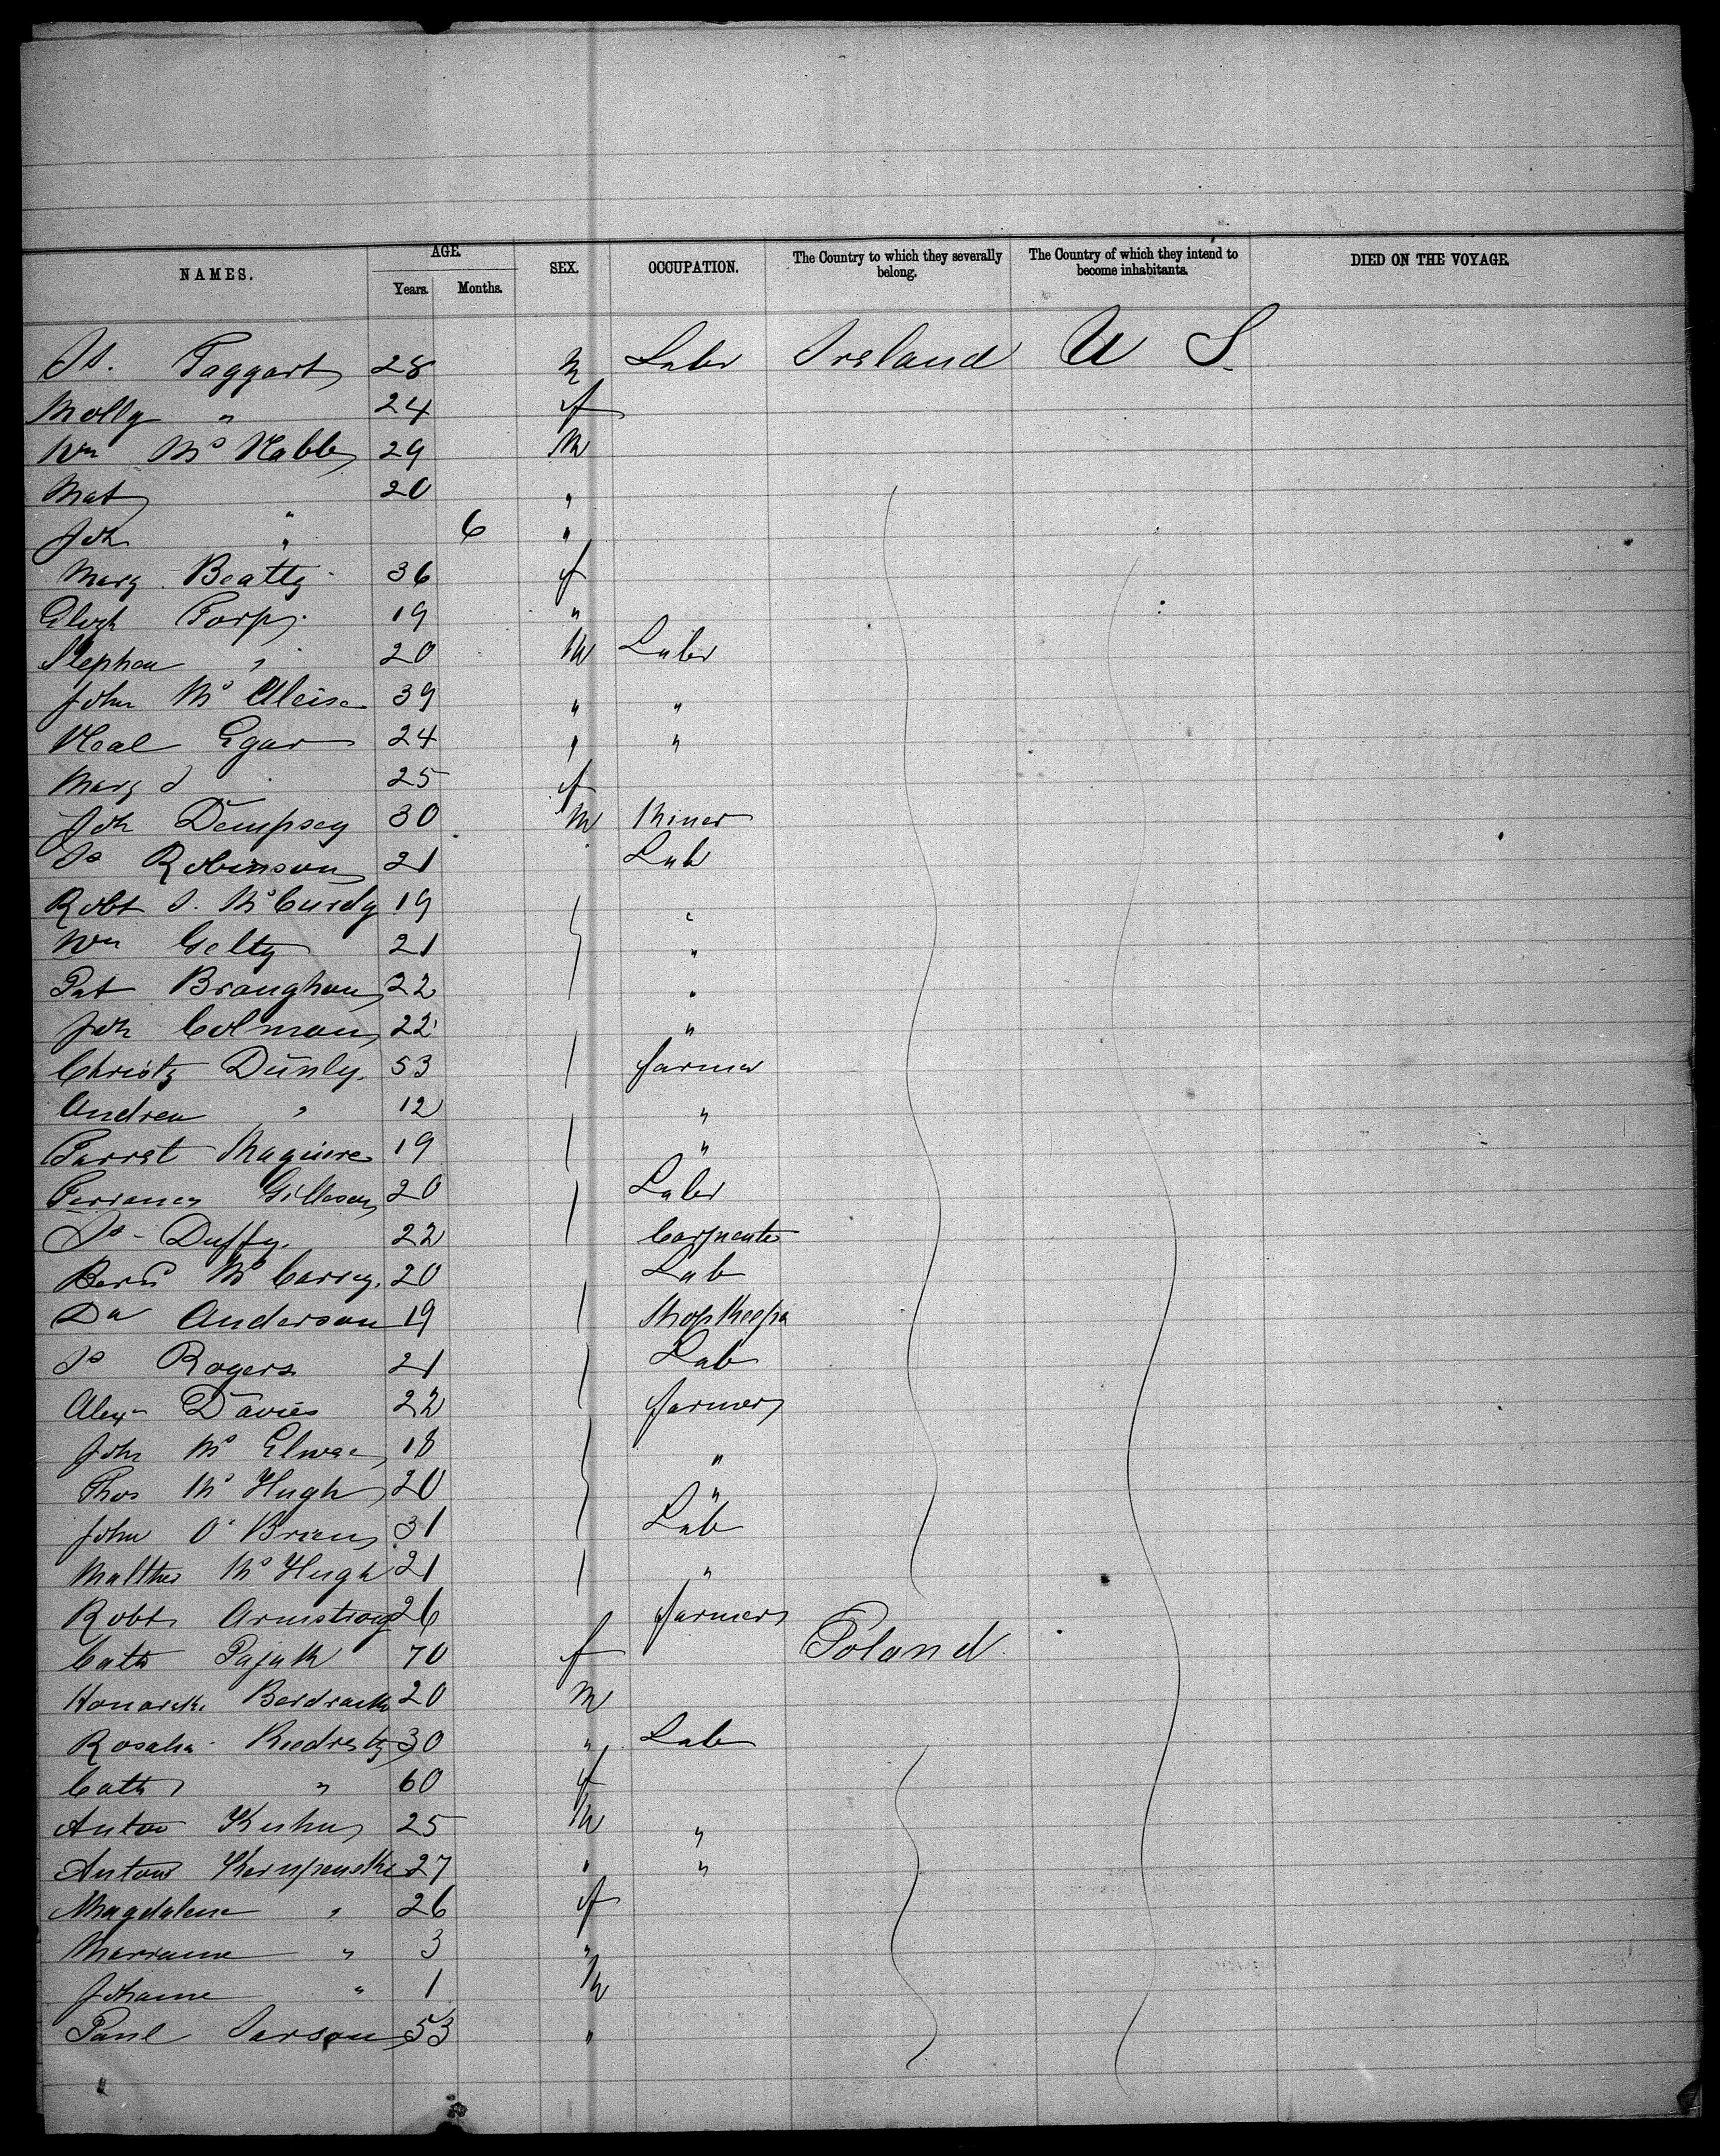 NAMES. AGE. Years. Months. SEX. OCCUPATION. The Country to which they severally belong. The Country of which they intend to become inhabitants. DIED ON THE VOYAGE.
Js. Taggart 28 M Labr Ireland U S
Molly " 24 f
Wm Mc Nabb 29 M
Mat " 20 "
Joh " 6 "
Marg Beatty 36 f
19 "
Stephen " 20 M Labr
John Mc 39 " "
Neal Egar 24 " "
Marg 25 f
Joh Dempsey 30 M Miner
Js Robinson 21 Lab
Robt J. McCurdy 19 "
Wm Gelty 21 "
Pat Branghan 22 "
Joh Colman 22 "
Christy Dunly 53 farmer
Andrew " 12 "
Maguire 19 "
20 Labr
Js Duffy 22 Carpenter
Bernd Mc 20 Lab
Da Anderson 19 Shopkeepr
Js Rogers 21 Lab
Alex Davies 22 farmer
John Mc 18 "
Thos Mc Hugh 20 "
John O'Brien 31 Lab
Matthew Mc Hugh 21 "
Robt Armstrong 26 farmer
Cath Pajak 70 f Poland
20 M
Rosalia 30 " Lab
Cath " 60 f
Anton 25 M "
Anton 27 " "
Magdalena " 26 f
Marianne " 3 "
Johanne " 1 M
Paul 53 "